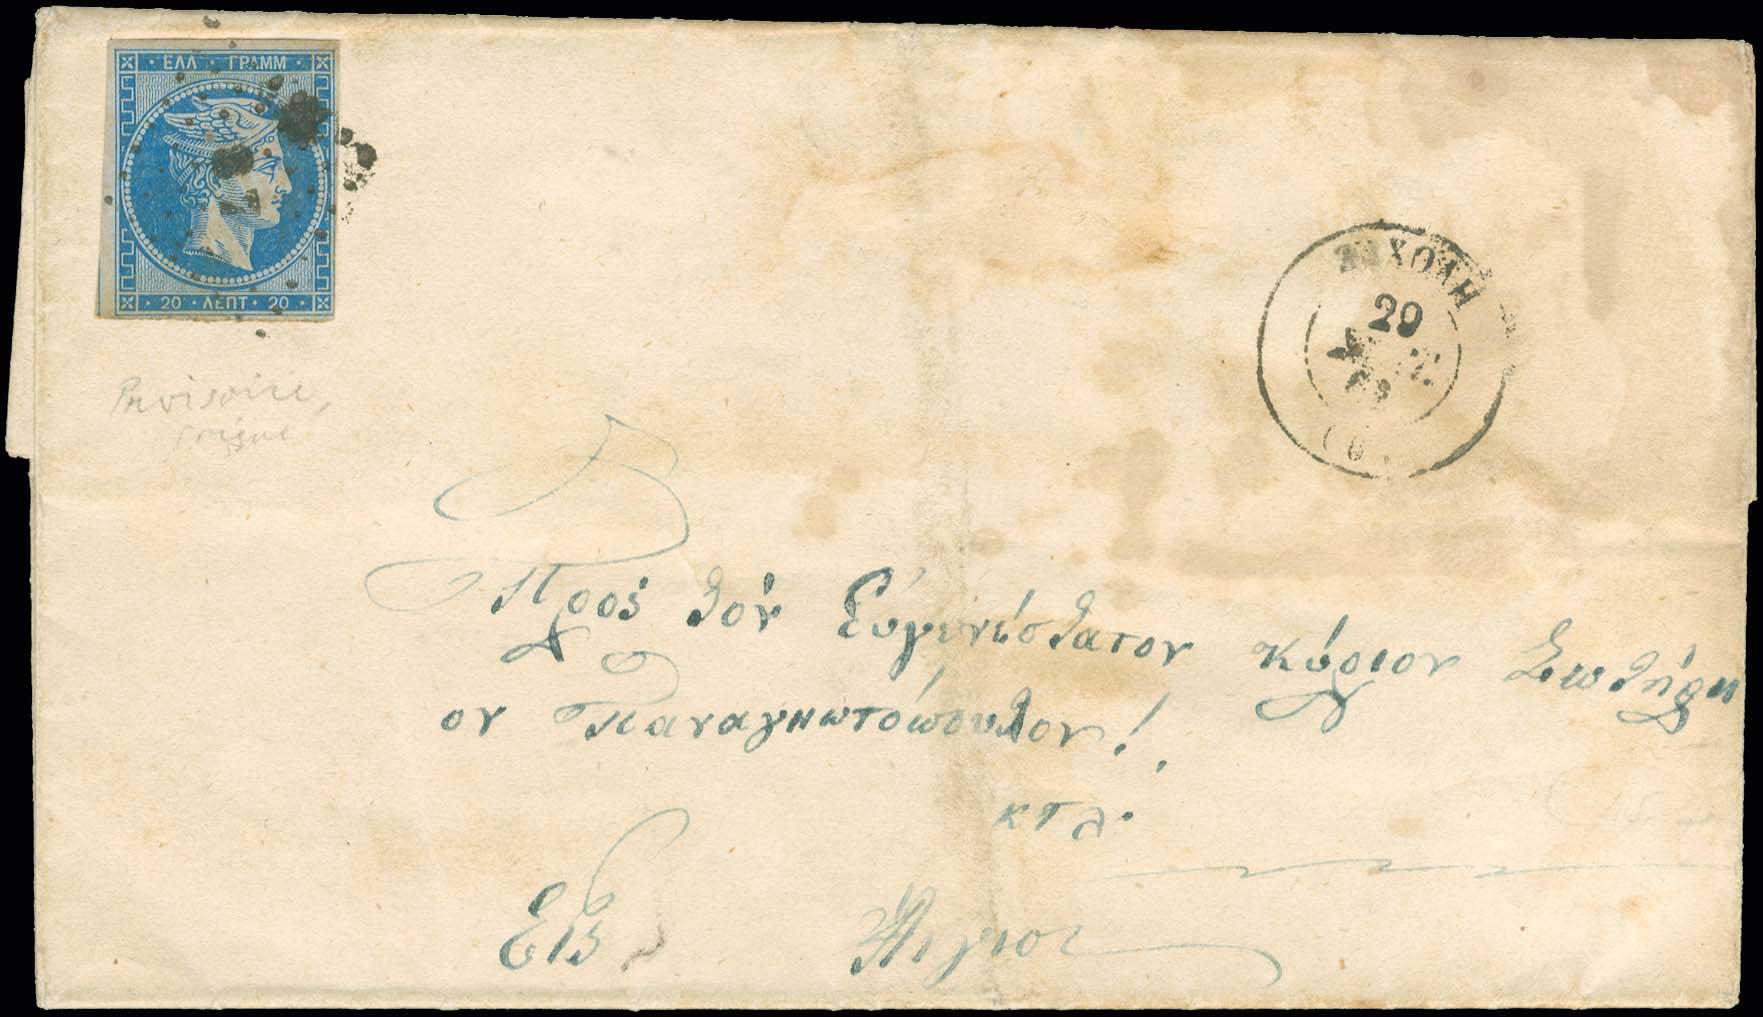 ΕΛΛ · ΓΡΑΜΜ
20 · ΛΕΠΤ · 20
20
Provisoire,
Πρὸς τὸν Εὐγενέστατον κύριον Σωτήρι
ον Παναγιωτόπουλον!
κτλ.
Εἰς Αἴγιον